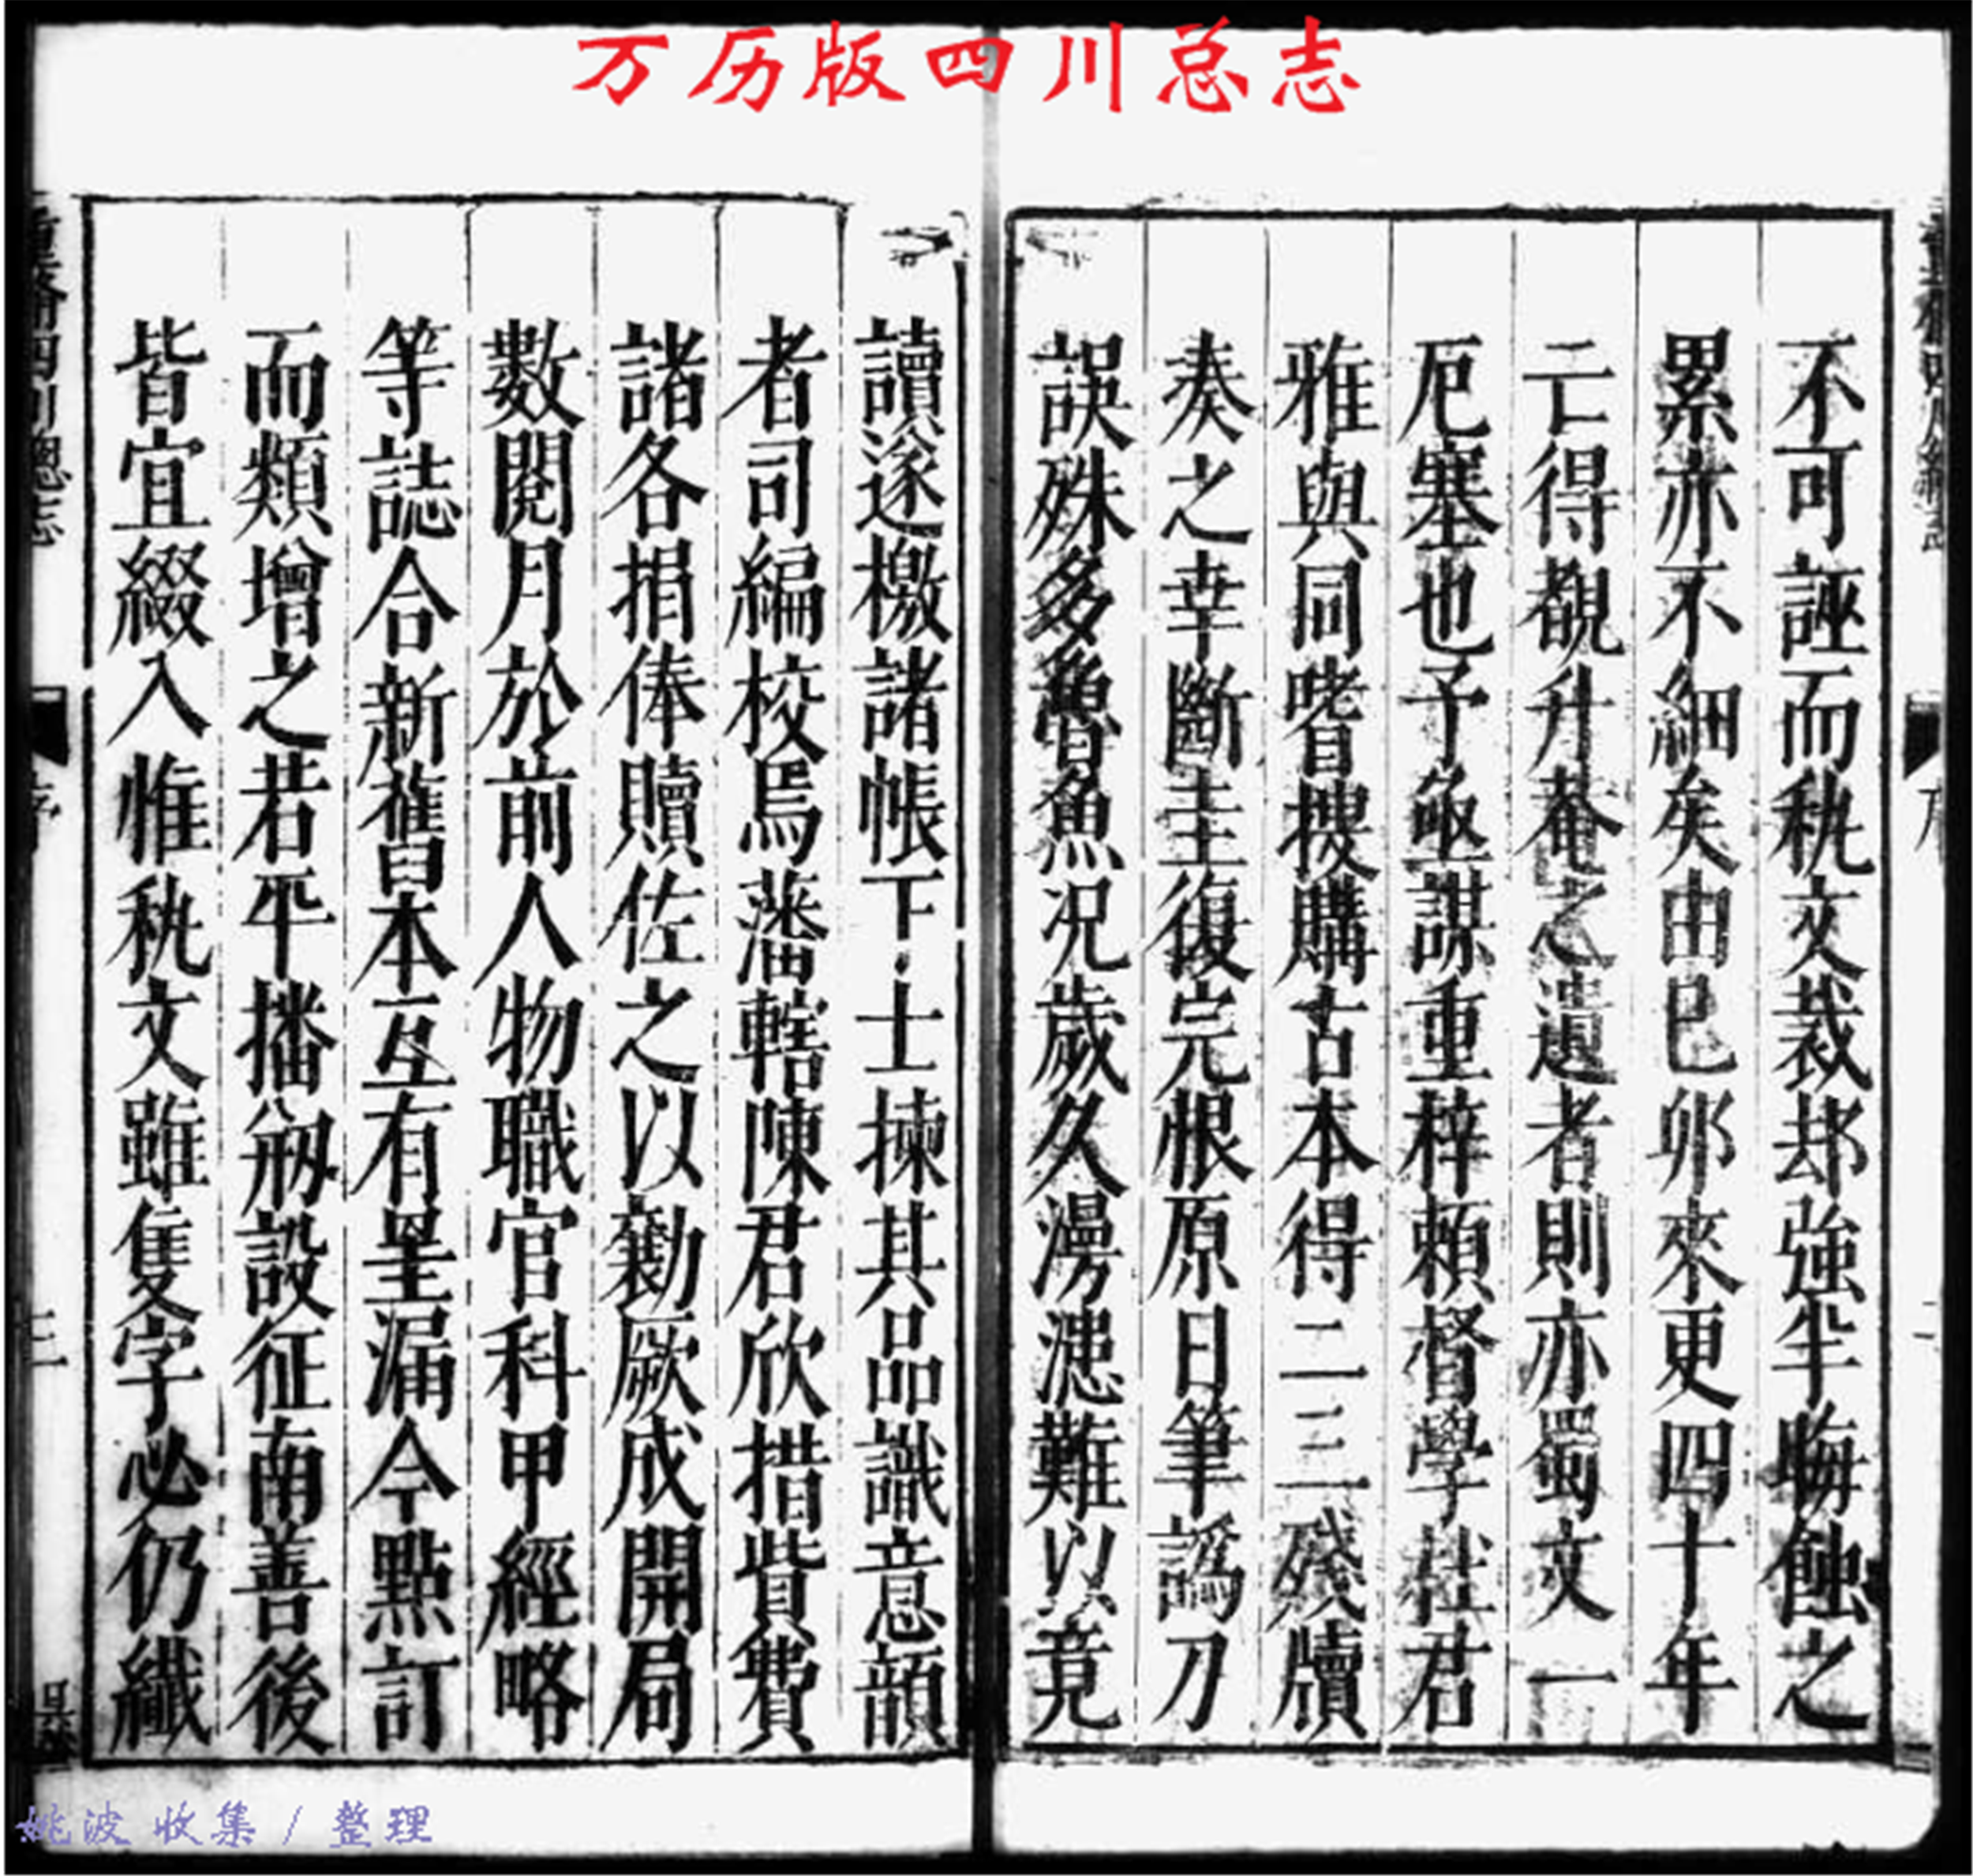 万历版四川总志
不可誣而秇文裁却強半晦蝕之
累亦不細矣由己卯來更四十年
亡得覩升菴之遺者則亦蜀文一
厄塞也予亟謀重梓頼督學杜君
雅與同嗜搜購古本得二三殘牘
奏之幸斷圭復完恨原日筆譌刀
誤殊多魯魚况歲久漫漶難以竟
讀遂檄諸帳下士揀其品識意韻
者司編校焉藩轄陳君欣措貲費
諸各捐俸贖佐之以勷厥成開局
數閱月於前人物職官科甲經略
等誌合新舊本互有呈漏今點訂
而類增之若平播剏設征南善後
皆宜綴入惟秇文雖隻字必仍纖
四川總志
序
三
姚波 收集 / 整理